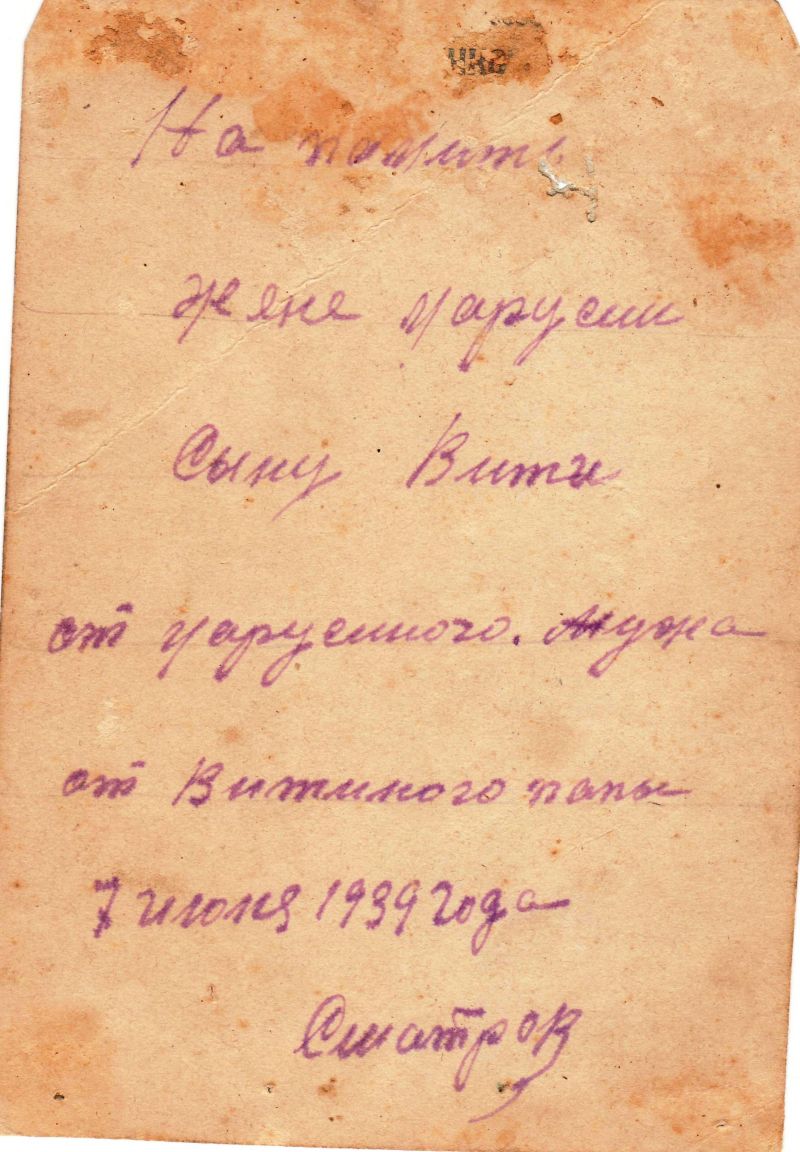 На памить
жене Марусии
Сыну Вити
от Марусиного. Мужа
от Витиного папы
7 июня 1939 года